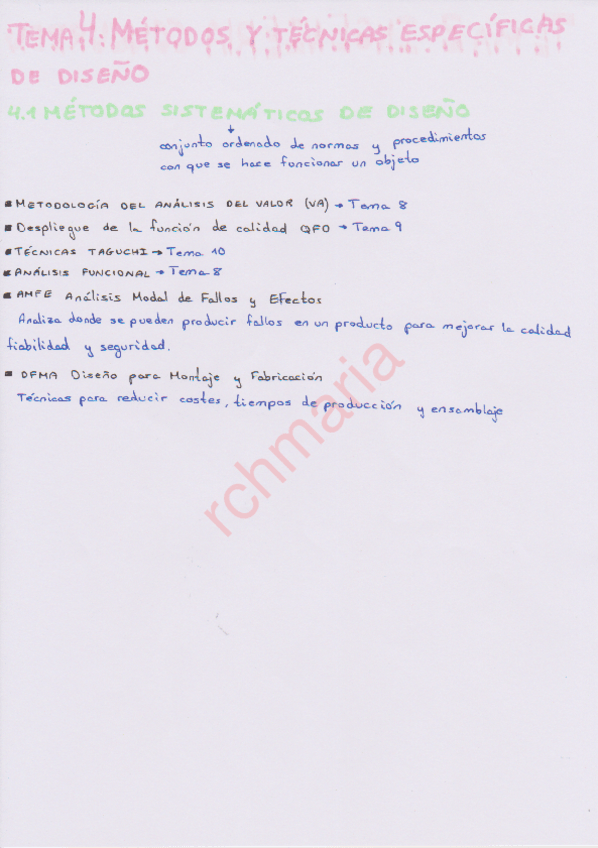 TEMA 4: MÉTODOS Y TÉCNICAS ESPECÍFICAS
DE DISEÑO
4.1 MÉTODOS SISTEMÁTICOS DE DISEÑO
↓
conjunto ordenado de normas y procedimientos
con que se hace funcionar un objeto
▪ METODOLOGÍA DEL ANÁLISIS DEL VALOR (VA) → Tema 8
▪ Despliegue de la función de calidad QFD → Tema 9
▪ TÉCNICAS TAGUCHI → Tema 10
▪ ANÁLISIS FUNCIONAL → Tema 8
▪ AMFE Análisis Modal de Fallos y Efectos
Analiza donde se pueden producir fallos en un producto para mejorar la calidad
fiabilidad y seguridad.
▪ DFMA Diseño para Montaje y Fabricación
Técnicas para reducir costes, tiempos de producción y ensamblaje
rchmaria